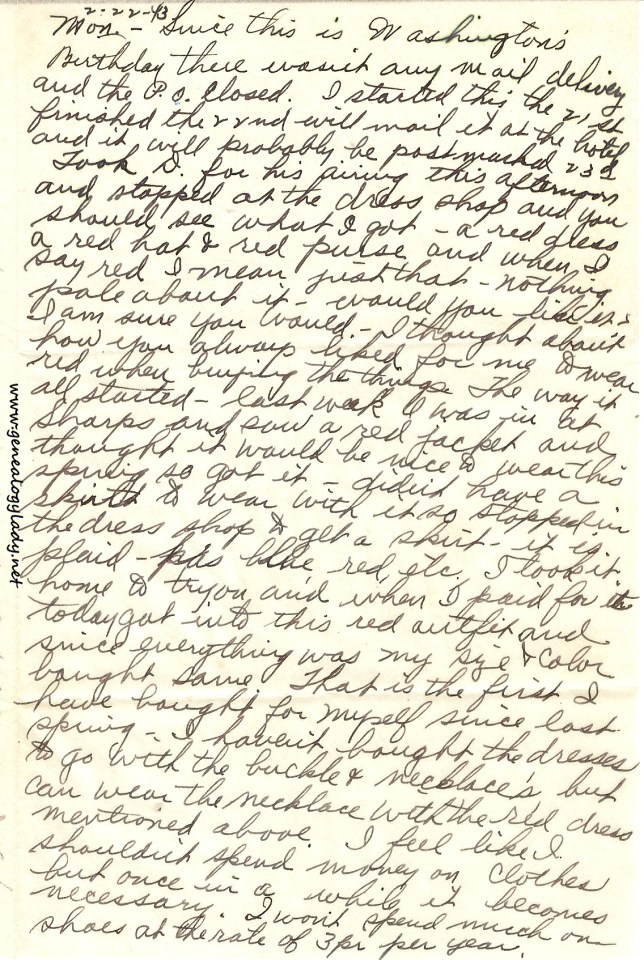 2-22-43
Mon. - Since this is Washington's
Birthday there wasn't any mail delivery
and the P.O. closed. I started this the 21st
finished the 22nd will mail it at the hotel
and it will probably be postmarked 23d
Took D. for his airing this afternoon
and stopped at the dress shop and you
should see what I got - a red dress
a red hat & red purse and when I
say red I mean just that - nothing
pale about it - would you like it -
I am sure you would - I thought about
how you always liked for me to wear
red when buying the things. The way it
all started - last week I was in at
Sharps and saw a red jacket and
thought it would be nice to wear this
spring so got it - didn't have a
skirt to wear with it so stopped in
the dress shop to get a skirt - it is
plaid - has blue red, etc. I took it
home to try on, and when I paid for it
today got into this red outfit and
since everything was my size & color
bought same. That is the first I
have bought for myself since last
spring - I haven't bought the dresses
to go with the buckle & necklace's but
can wear the necklace with the red dress
mentioned above. I feel like I
shouldn't spend money on clothes
but once in a while it becomes
necessary. I won't spend much on
shoes at the rate of 3 pr per year.
www.genealogylady.net